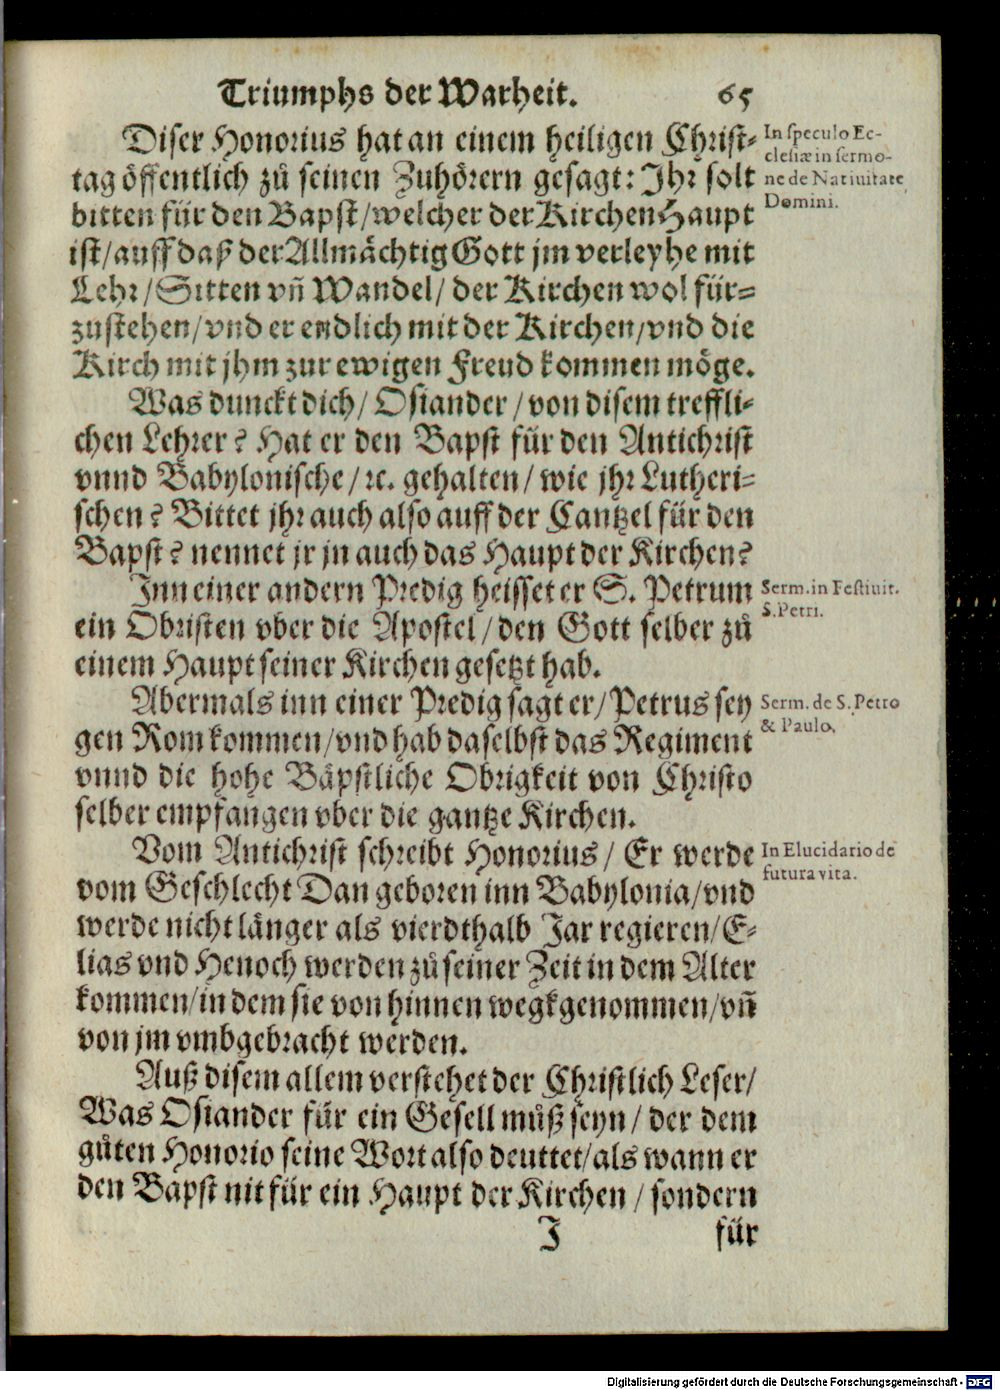 Triumphs der Warheit. 65
Diser Honorius hat an einem heiligen Christ-
tag öffentlich zů seinen Zuhörern gesagt: Ihr solt
bitten für den Bapst/welcher der Kirchen Haupt
ist/auff daß der Allmächtig Gott jm verleyhe mit
Lehr/Sitten vñ Wandel/der Kirchen wol für-
zustehen/vnd er endlich mit der Kirchen/vnd die
Kirch mit jhm zur ewigen Freud kommen möge.
In speculo Ec-
clesiæ in sermo-
ne de Natiuitate
Domini.
Was dunckt dich/Osiander/von disem treffli-
chen Lehrer? Hat er den Bapst für den Antichrist
vnnd Babylonische/ꝛc. gehalten/wie jhr Lutheri-
schen? Bittet jhr auch also auff der Cantzel für den
Bapst? nennet jr jn auch das Haupt der Kirchen?
Inn einer andern Predig heisset er S. Petrum
ein Obristen vber die Apostel/den Gott selber zů
einem Haupt seiner Kirchen gesetzt hab.
Serm. in Festiuit.
S. Petri.
Abermals inn einer Predig sagt er/Petrus sey
gen Rom kommen/vnd hab daselbst das Regiment
vnnd die hohe Bäpstliche Obrigkeit von Christo
selber empfangen vber die gantze Kirchen.
Serm. de S. Petro
& Paulo.
Vom Antichrist schreibt Honorius/Er werde
vom Geschlecht Dan geboren inn Babylonia/vnd
werde nicht länger als vierdthalb Jar regieren/E-
lias vnd Henoch werden zů seiner Zeit in dem Alter
kommen/in dem sie von hinnen wegkgenommen/vñ
von jm vmbgebracht werden.
In Elucidario de
futura vita.
Auß disem allem verstehet der Christlich Leser/
Was Osiander für ein Gesell můß seyn/der dem
gůten Honorio seine Wort also deuttet/als wann er
den Bapst nit für ein Haupt der Kirchen/sondern
I für
Digitalisierung gefördert durch die Deutsche Forschungsgemeinschaft - DFG